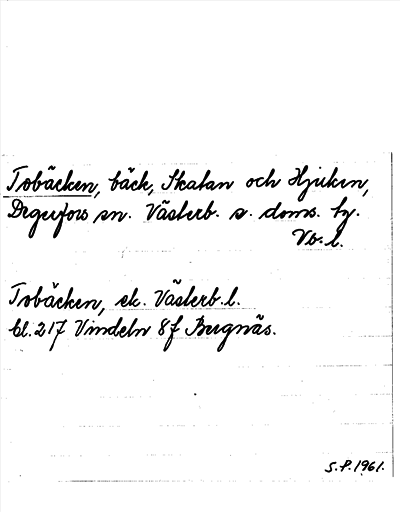 Tobäcken, bäck, Skatan och Hjuken,
Degerfors sn. Västerb. s. doms. hg.
Vb. l.
Tobäcken, ek. Västerb. l.
bl. 217 Vindeln 8f Bergnäs.
S.P. 1961.